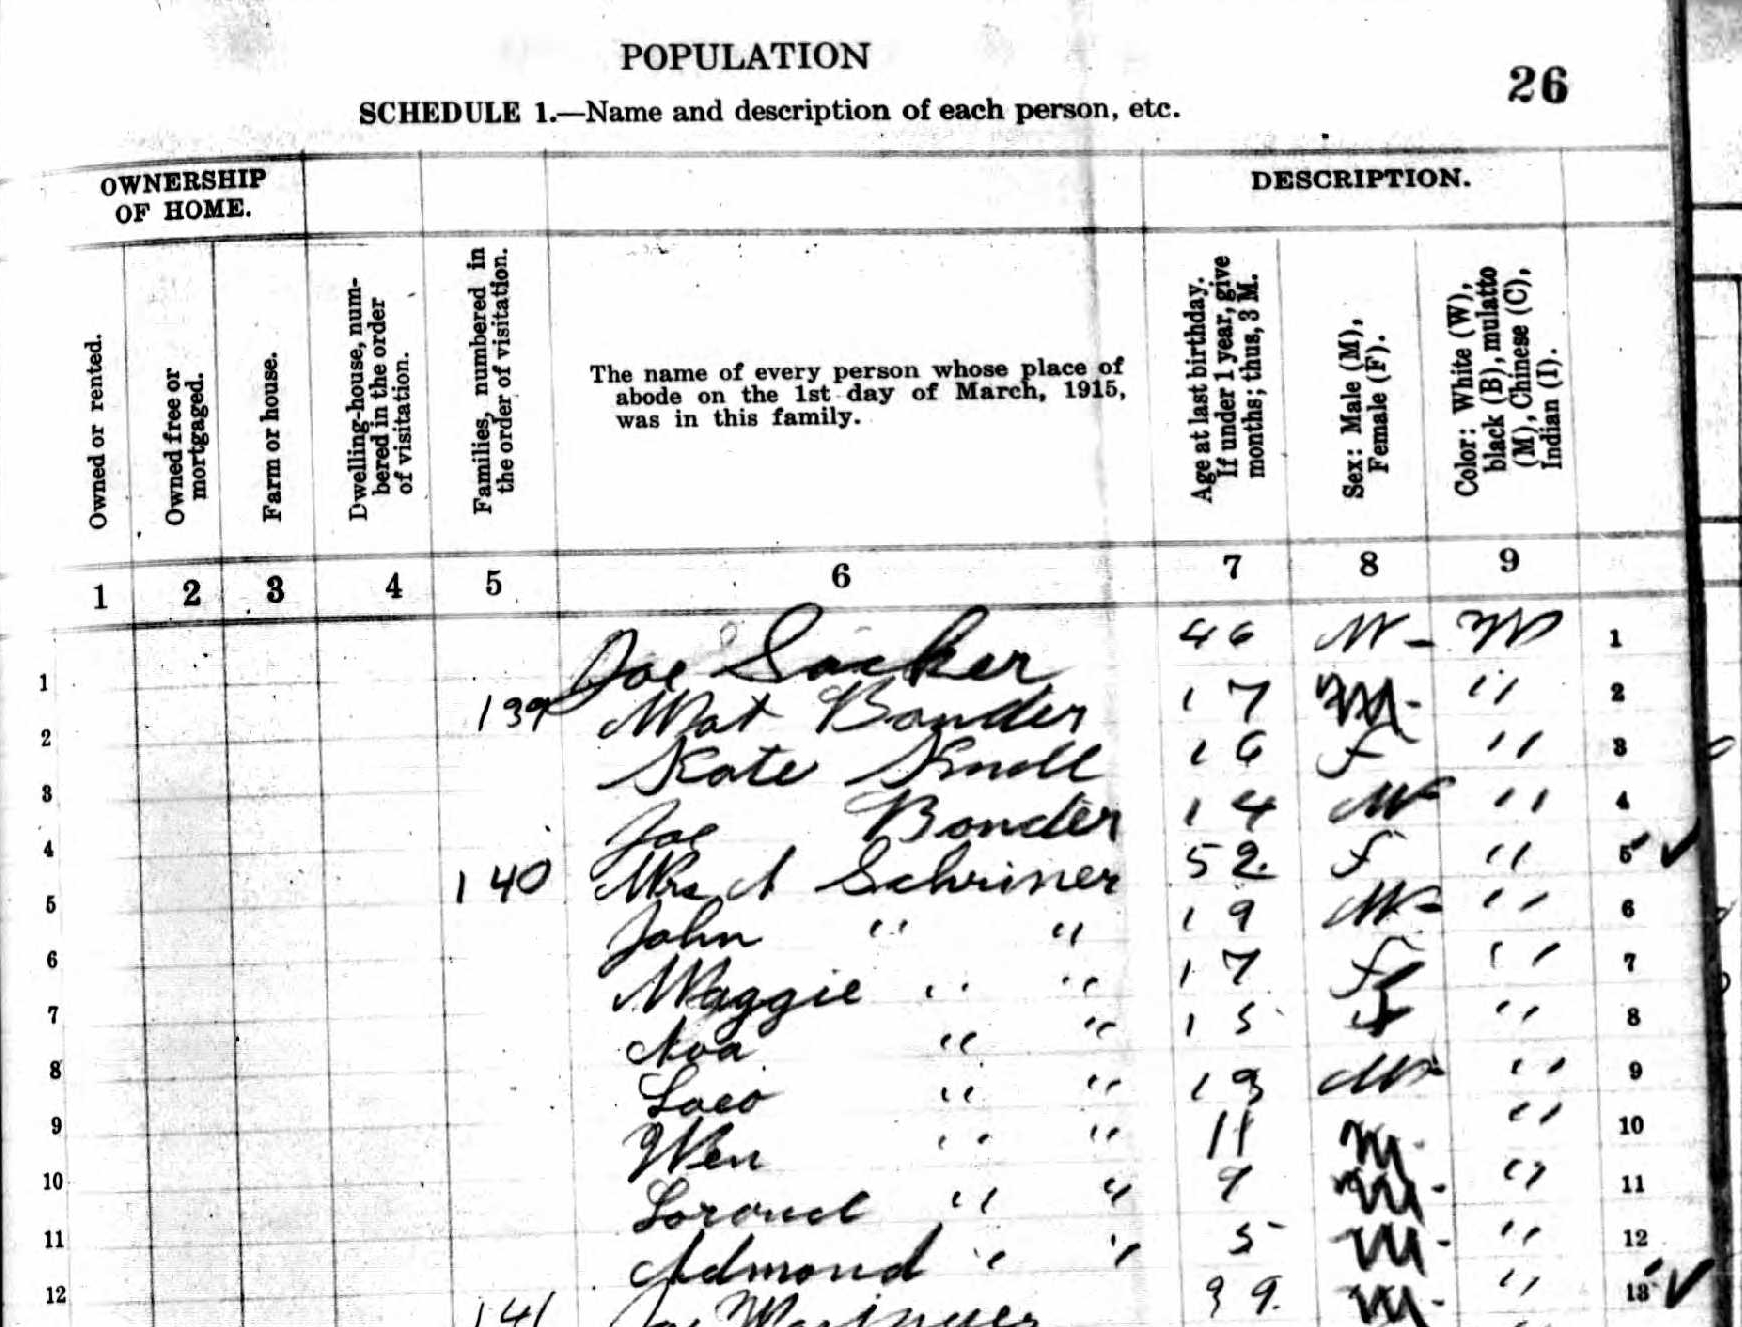 POPULATION
26
SCHEDULE 1.—Name and description of each person, etc.
OWNERSHIP
OF HOME.
DESCRIPTION.
Owned or rented.
Owned free or
mortgaged.
Farm or house.
Dwelling-house, num-
bered in the order
of visitation.
Families, numbered in
the order of visitation.
The name of every person whose place of
abode on the 1st day of March, 1915,
was in this family.
Age at last birthday.
If under 1 year, give
months; thus, 3 M.
Sex: Male (M),
Female (F).
Color: White (W),
black (B), mulatto
(M), Chinese (C),
Indian (I).
1 2 3 4 5 6 7 8 9
1 Joe Sacker 46 M - W 1
2 139 Mat Bonder 17 M - " 2
3 Kate 16 f " 3
4 Joe Bonder 14 M - " 4
5 140 Mrs A Schriner 52 f " 5 ✓
6 John " " 19 M - " 6
7 Maggie " " 17 f " 7
8 " " 15 f " 8
9 " " 13 M - " 9
10 " " 11 M - " 10
11 " " 9 M - " 11
12 Admond " " 5 M - " 12
141 Joe 39 M - " 13 ✓